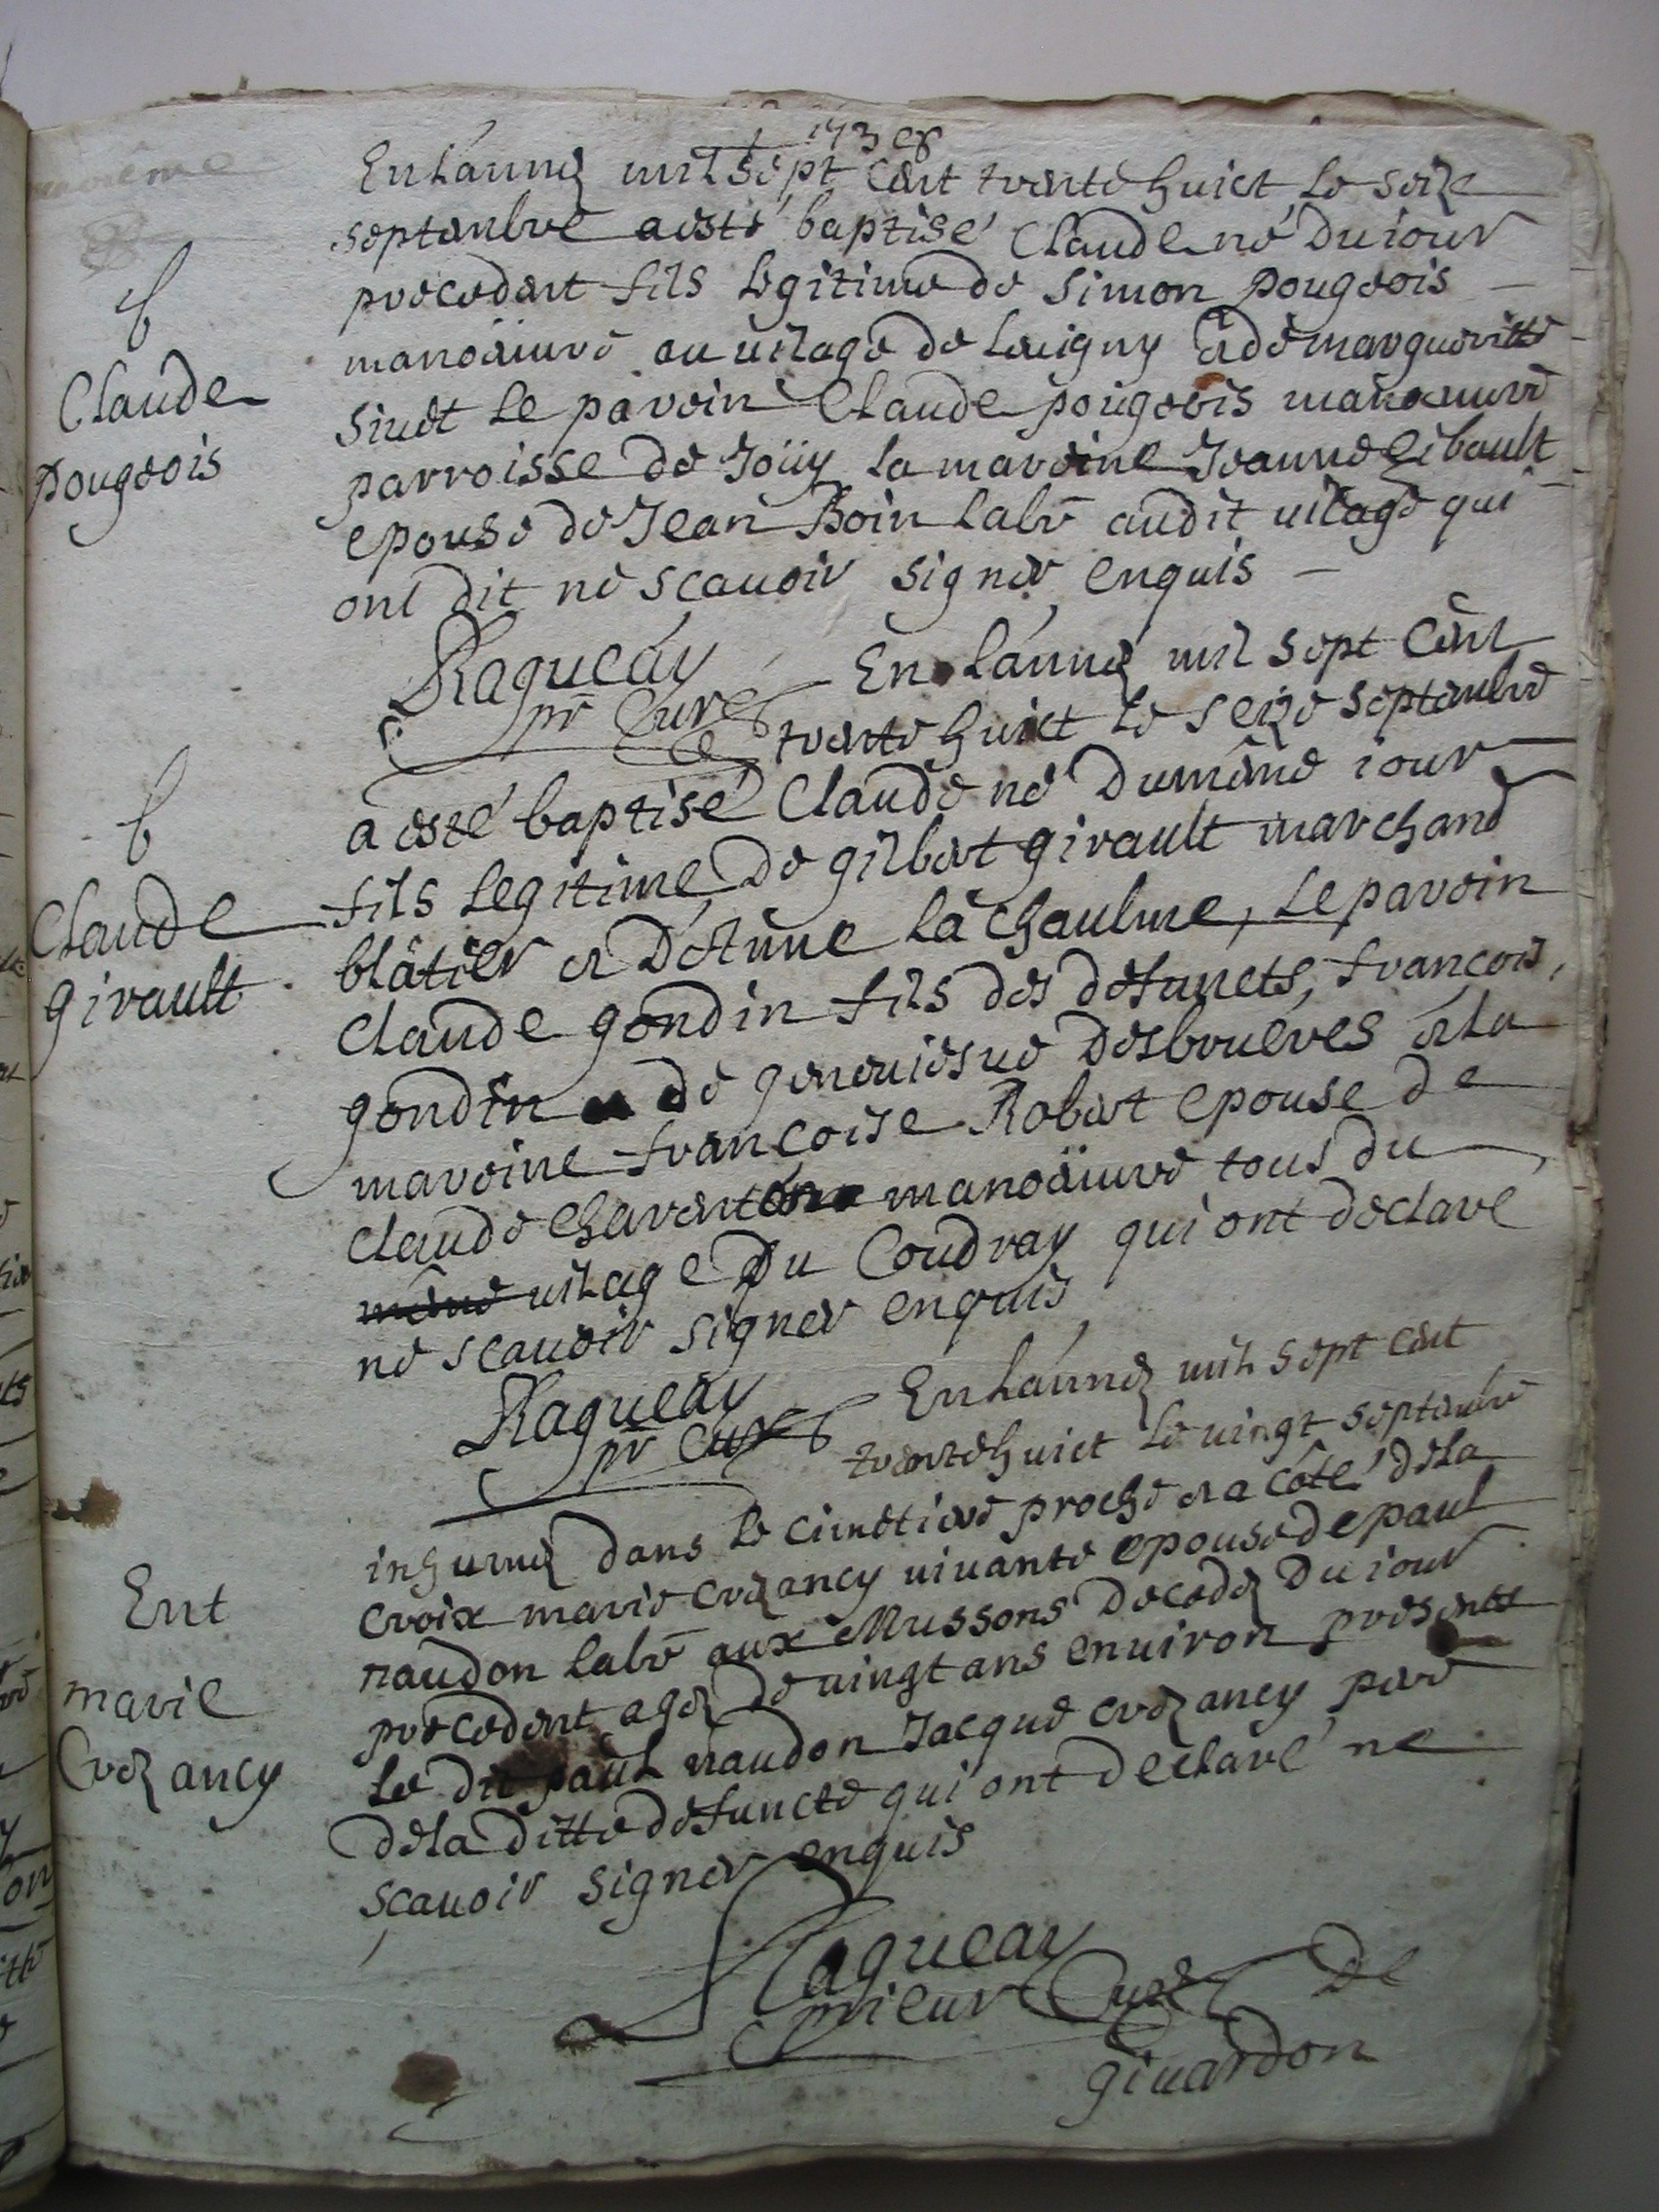 1738
En Lannee mil sept cent trente huict le seize
septembre a esté baptisé Claude né du iour
precedent fils legitime de Simon pougeois
manoeuure au uilage de Leuigny et de margueritte
Siuet le parein Claude pougeois manoeuure
parroisse de Joüy la mareine Jeanne Gibault
epouse de Jean Boin labr audit uilage qui
ont dit ne scauoir signer enquis
b
Claude
pougeois
Ragueau
pr Curé
En Lannee mil sept cent
trente huict le seize septembre
a esté baptisé Claude né du méme iour
fils legitime de gilbert girault marchand
blâtier et d'Anne La chaulme, le parein
Claude gondin fils des defuncts, françois
gondin et de geneuiesue desbrueres et la
mareine françoise Robert epouse de
Claude Charenton manoeuure tous du
méme uilage du Coudray qui ont declaré
ne scauoir signer enquis
b
Claude
girault
Ragueau
pr Curé
En Lannee mil sept cent
trente huict le uingt septembre
inhumee dans le cimetiere proche et a côté de la
croix marie crezancy uiuante epouse de paul
naudon labr aux Mussons decedee du iour
precedent agee de uingt ans enuiron presents
le dit paul naudon Jacque crezancy pere
de la ditte defuncte qui ont declaré ne
scauoir signer enquis
Ent
marie
Crezancy
Ragueau
prieur Curé de
giuardon